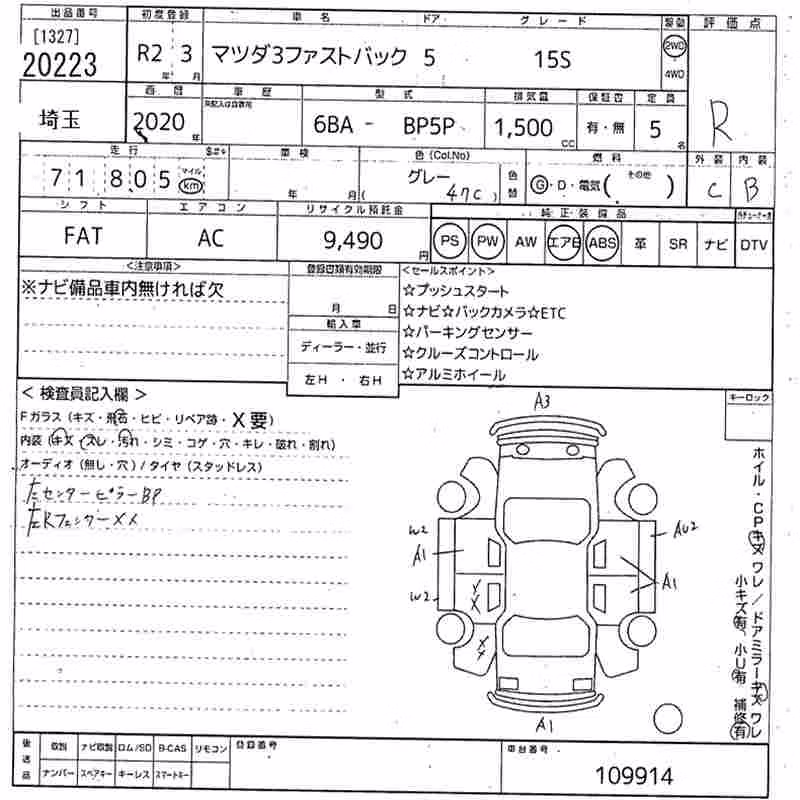 出品番号 初度登録 車名 ドア グレード 駆動 評価点
[1327]
20223 R2 3 マツダ3ファストバック 5 15S 2WD
年 月 4WD
西暦 車歴 型式 排気量 保証書 定員
埼玉 2020 年 6BA - BP5P 1,500 CC 有・無 5 名 R
走行 車検 色 (Col.No) 燃料 外装 内装
71805 マイル km 年 月 グレー ( 47C ) 色替 G・D・電気( その他 ) C B
シフト エアコン リサイクル預託金 純正装備品
FAT AC 9,490 円 PS PW AW エアB ABS 革 SR ナビ DTV
<注意事項> 登録書類有効期限 <セールスポイント>
※ナビ備品車内無ければ欠 ☆プッシュスタート
月 日 ☆ナビ☆バックカメラ☆ETC
輸入車 ☆パーキングセンサー
ディーラー・並行 ☆クルーズコントロール
左H ・ 右H ☆アルミホイール
< 検査員記入欄 > キーロック
Fガラス (キズ・飛石・ヒビ・リペア跡・X要)
内装 (キズ・スレ・汚れ・シミ・コゲ・穴・キレ・破れ・割れ)
オーディオ (無し・穴) / タイヤ (スタッドレス)
左センターピラーBP
左Rフェンダーメメ
A3
W2 AU2
A1
W2 A1
X
X
X
X
A1
ホイル・CPキズ ワレ / ドアミラーキズ ワレ
小キズ有、小U有 補修有
後送品 取説 ナビ取説 ロム/SD B-CAS リモコン 登録番号 車台番号
ナンバー スペアキー キーレス スマートキー 109914